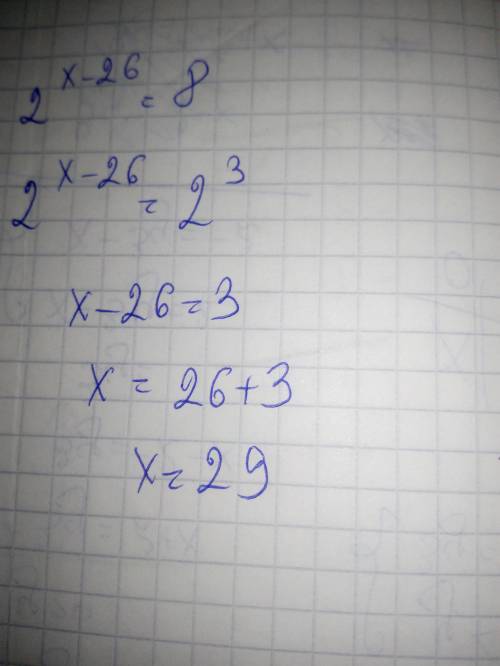 2^{x-26} = 8
2^{x-26} = 2^3
x-26=3
x = 26+3
x=29